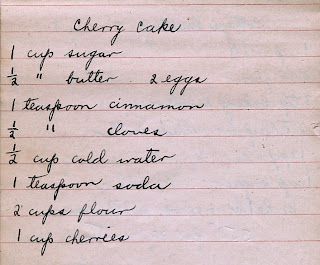 Cherry Cake
1 cup sugar
1/2 " butter 2 eggs
1 teaspoon cinnamon
1/2 " cloves
1/2 cup cold water
1 teaspoon soda
2 cups flour
1 cup cherries